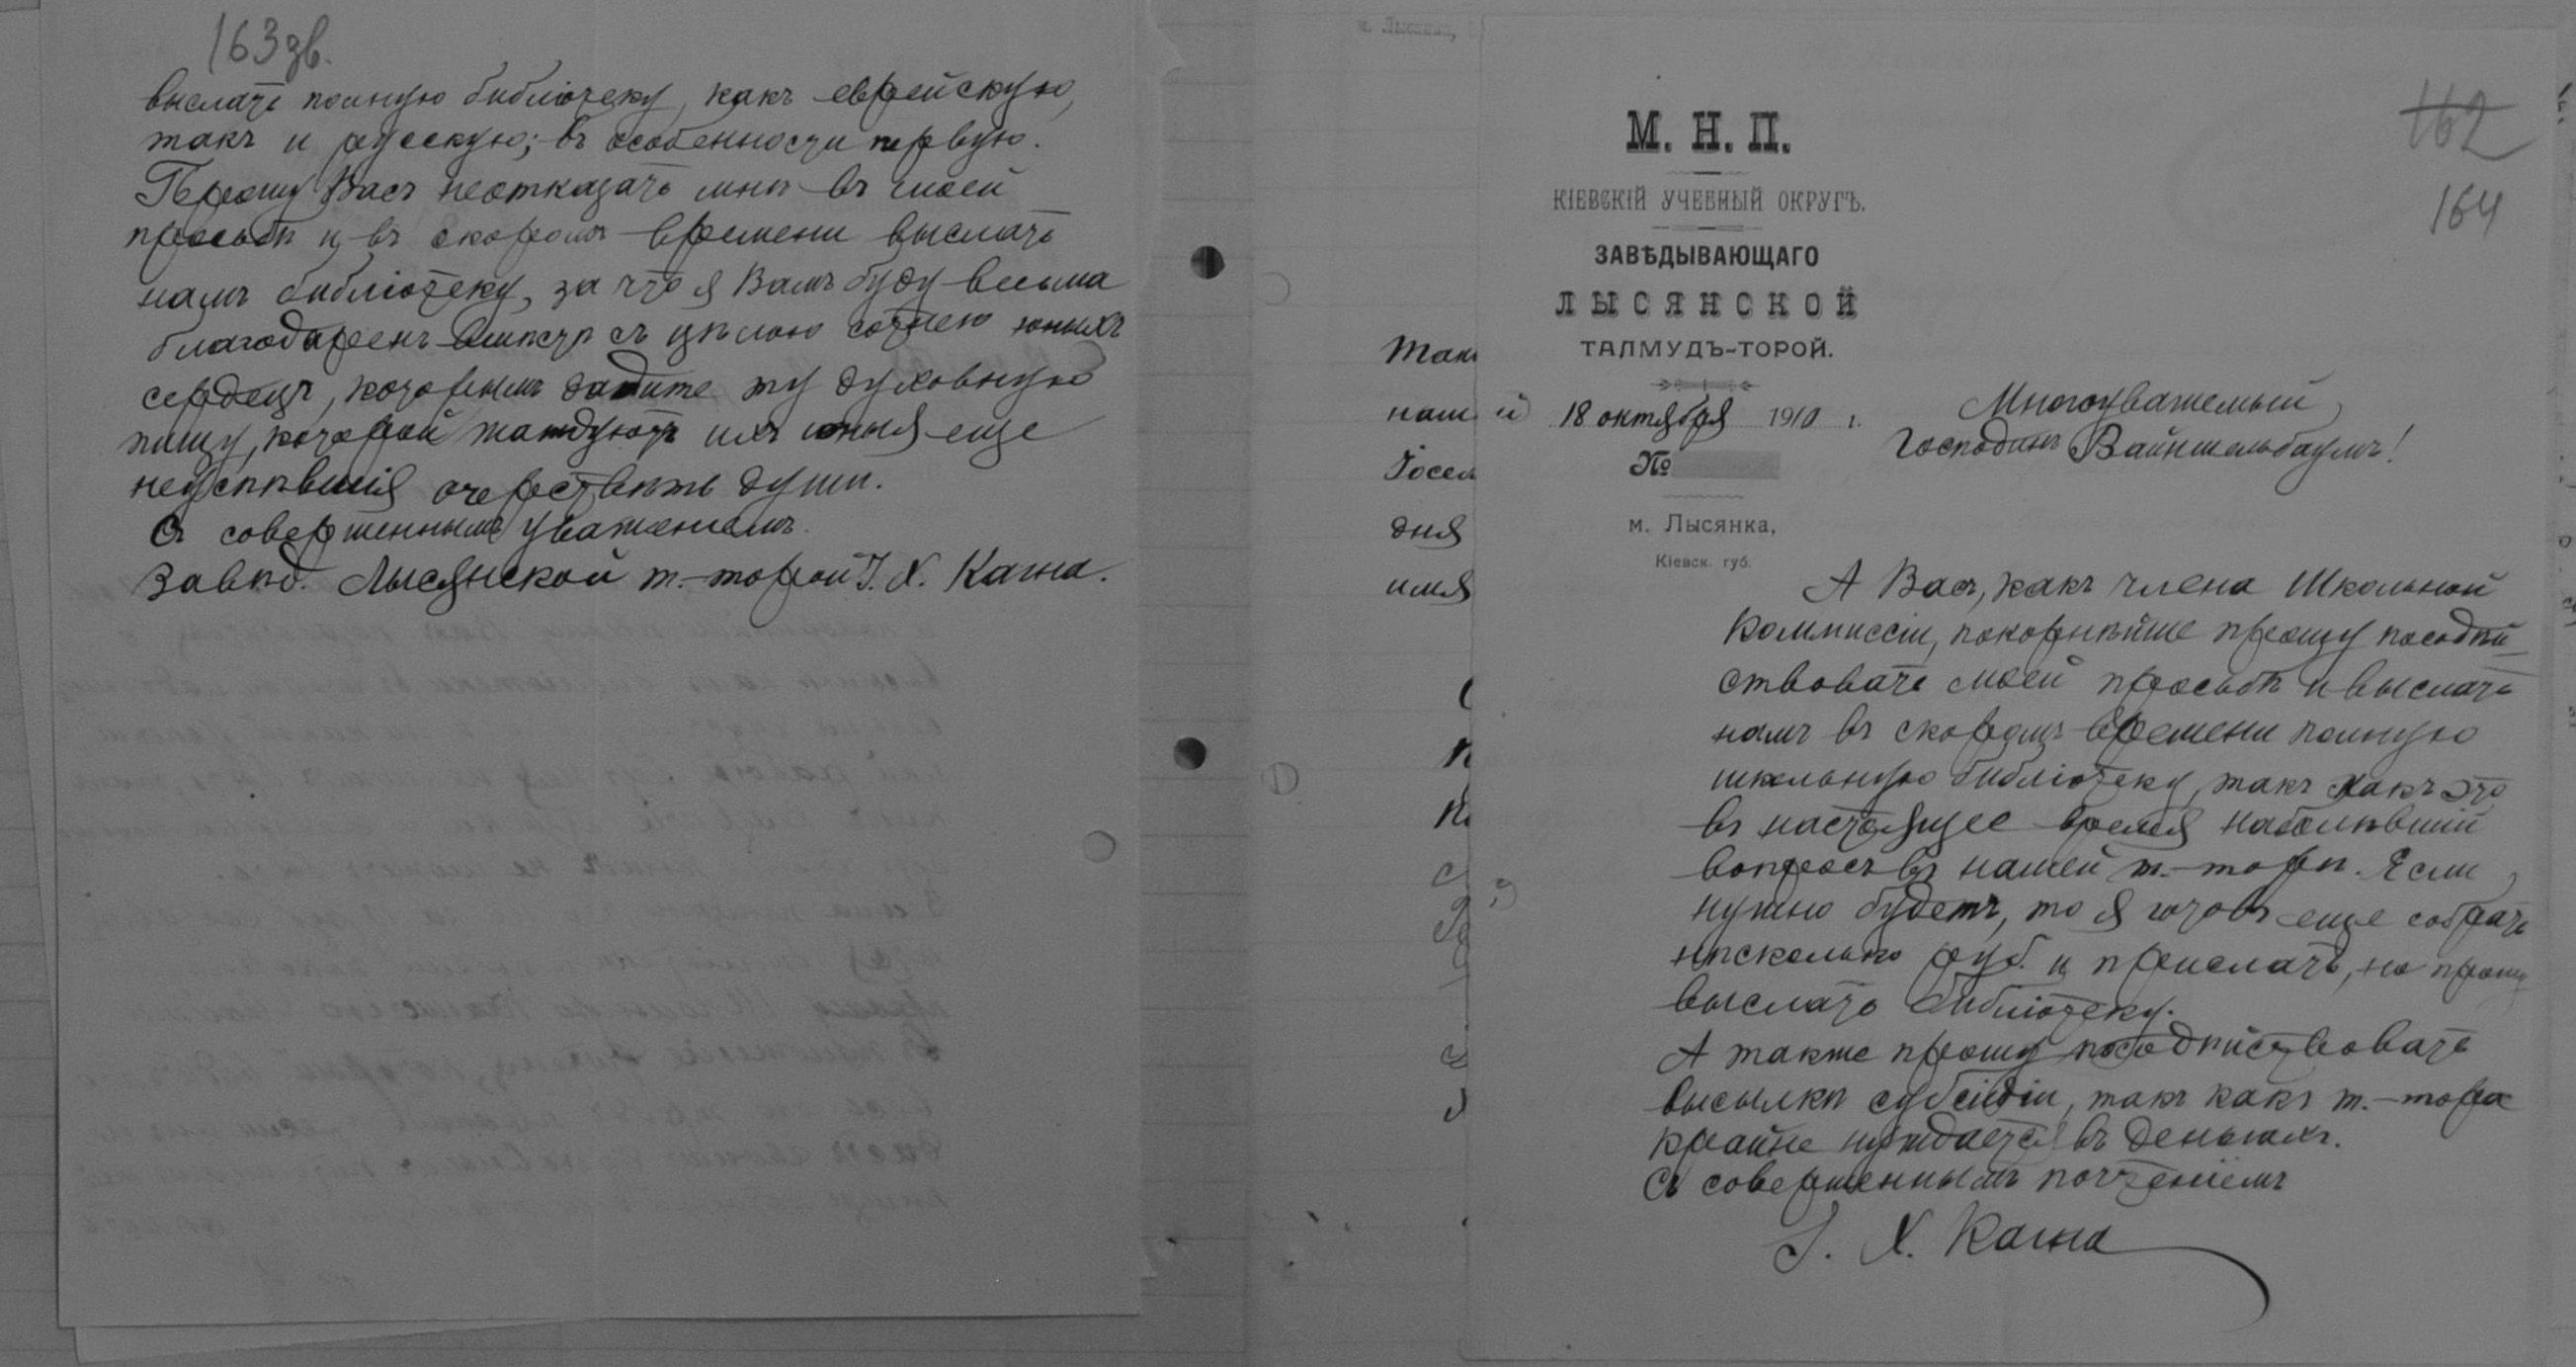 163 зв.
выслать полную библіотеку, какъ еврейскую,
такъ и русскую; въ особенности первую.
Прошу Васъ неотказать мнѣ въ моей
просьбѣ и въ скоромъ времени выслать
намъ библіотеку, за что я Вамъ буду весьма
благодаренъ вмѣстѣ съ цѣлою сотнею юныхъ
сердецъ, которымъ дадите ту духовную
пищу, которой жаждутъ ихъ юныя еще
неуспѣвшія очерствѣть души.
Съ совершеннымъ уваженіемъ.
Завѣд. Лысянской т.-торой І. Х. Кагна.
162
164
М. Н. П.
КІЕВСКІЙ УЧЕБНЫЙ ОКРУГЪ.
ЗАВѢДЫВАЮЩАГО
ЛЫСЯНСКОЙ
ТАЛМУДЪ-ТОРОЙ.
18 октября 1910 г.
№
м. Лысянка,
Кіевск. губ.
Многоуважемый
Господинъ Вайнштельбаумъ!
А Васъ, какъ члена Школьной
Коммиссіи, покорнѣйше прошу посодѣй-
ствовать моей просьбѣ и выслать
намъ въ скоромъ времени полную
школьную библіотеку, такъ какъ это
въ настоящее время наболѣвшій
вопросъ въ нашей т.-торѣ. Если
нужно будетъ, то я готовъ еще собрать
нѣсколько руб. и прислать, но прошу
выслать библіотеку.
А также прошу посодѣйствовать
высылкѣ субсидіи, такъ какъ т.-тора
крайне нуждается въ деньгахъ.
Съ совершеннымъ почтеніемъ
І. Х. Кагна
Так
наш
Іосел
дня
имя